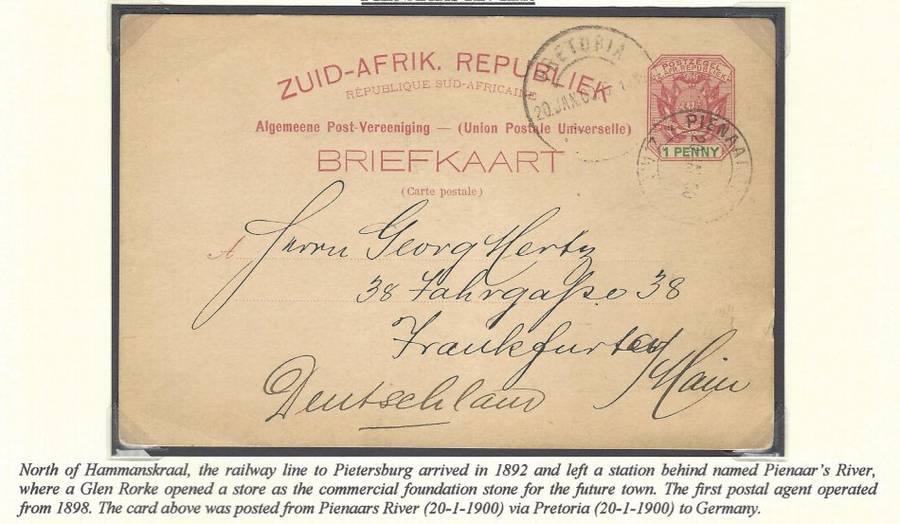 ZUID-AFRIK. REPUBLIEK
RÉPUBLIQUE SUD-AFRICAINE
Algemeene Post-Vereeniging — (Union Postale Universelle)
BRIEFKAART
(Carte postale)
PRETORIA
20.JAN.
POSTZEGEL
1 PENNY
PIENAAR
A Herrn Georg Hertz
38 Fahrgaße 38
Frankfurt a/Main
Deutschland
North of Hammanskraal, the railway line to Pietersburg arrived in 1892 and left a station behind named Pienaar's River,
where a Glen Rorke opened a store as the commercial foundation stone for the future town. The first postal agent operated
from 1898. The card above was posted from Pienaars River (20-1-1900) via Pretoria (20-1-1900) to Germany.